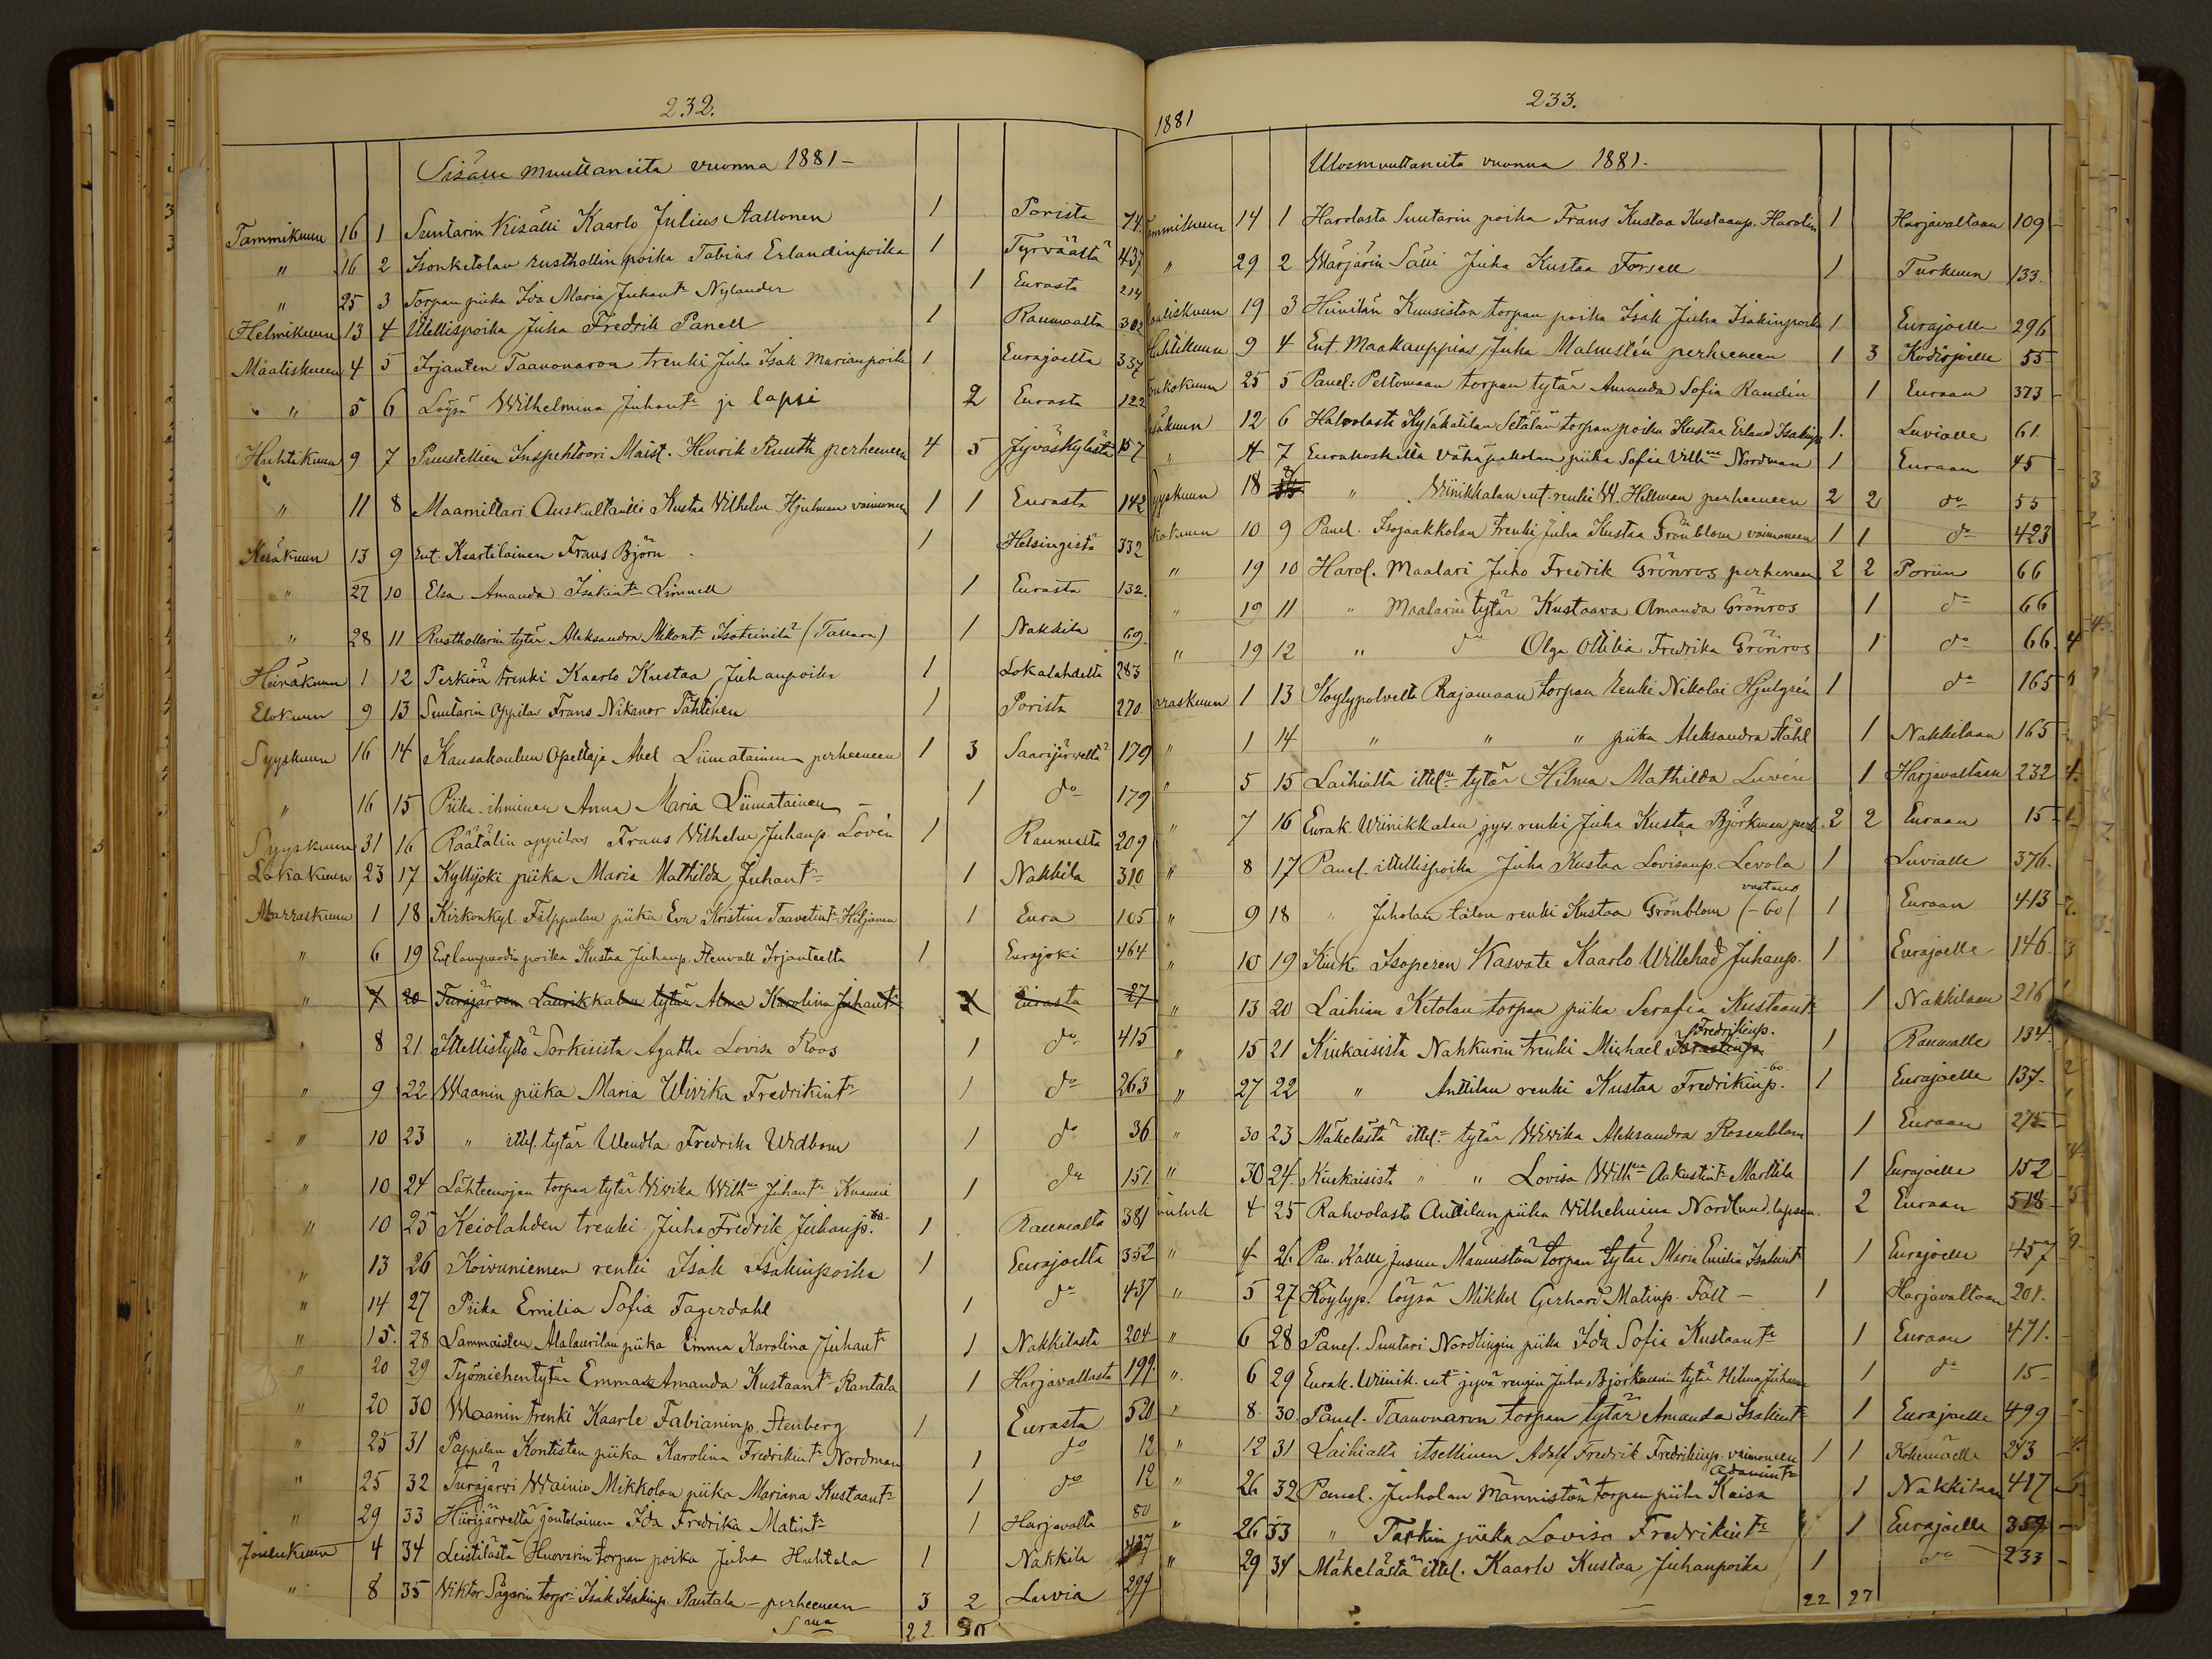 232.
Sisälle muuttaneita vuonna 1881-
Tammikuun 16 1 Suutarin Kisälli Kaarlo Julius Aaltonen 1 Porista 74.
" 16 2 Isonketolan rusthollin poika Tobias Erlandinpoika 1 Tyrväästä 437
" 25 3 Torpan piika Ida Maria Juhant: Nylander 1 Eurasta 214
Helmikuun 13 4 Itellispoika Juha Fredrik Panell 1 Raumalta 302
Maaliskuun 4 5 Irjanten Taavonaron trenki Juha Isak Marianpoika 1 Eurajoelta 337
" 5 6 Löysä Wilhelmina Juhant: ja lapsi 2 Eurasta 122
Huhtikuun 9 7 Puustellien Inspehtoori Maist. Henrik Ruuth perheeneen 4 5 Jyväskylästä 157
" 11 8 Maamittari Auskultantti Kustaa Vilhelm Hjulman vaimoneen 1 1 Eurasta 142
Kesäkuun 13 9 Ent. Kaartilainen Frans Björn 1 Helsingistä 332
" 27 10 Elsa Amanda Isakint: Linnell 1 Eurasta 132.
" 28 11 Rusthollarin tytär Aleksandra Mikont: Isoteinilä (Tattara) 1 Nakkila 69.
Heinäkuun 1 12 Perkiön trenki Kaarlo Kustaa Juhanpoika 1 Lokalahdelta 283
Elokuun 9 13 Suutarin Oppilas Frans Nikanor Tähtinen 1 Porista 270
Syyskuun 16 14 Kansakoulun Opettaja Abel Liimatainen perheeneen 1 3 Saarijärveltä 179
" 16 15 Piika-ihminen Anna Maria Liimatainen - 1 do 179
Syyskuun 31 16 Räätälin oppilas Frans Vilhelm Juhanp. Lovén 1 Raumalta 209
Lokakuun 23 17 Kyllijoki piika Maria Mathilda Juhant: 1 Nakkila 310
Marraskuun 1 18 Kirkonkyl. Filppulan piika Eva Kristina Taavetint: Hiljanen 1 Eura 105
" 6 19 poika Kustaa Juhanp. Stenvall Irjanteelta 1 Eurajoki 464
" 7 20 Turajärven Laurikkalan tytär Alma Karolina Juhant: 1 Eurasta 27
" 8 21. Itellistyttö Sorkisista Agatha Lovisa Roos 1 do 415
" 9 22 Waanin piika Maria Wivika Fredrikint: 1 do 263
" 10 23 " ittel. tytär Wendla Fredrika Widbom 1 do 36
" 10 24 Lähteenojan torpan tytär Wivika Wilhna Juhant: 1 do 151
" 10 25 Keiolahden trenki Juha Fredrik Juhanp. 1 Raumalta 381
" 13 26 Koivuniemen renki Isak Isakinpoika 1 Eurajoelta 352
" 14 27 Piika Emilia Sofia Fagerdahl 1 do 437
" 15. 28 Lammaisten Alalaurilan piika Emma Karolina Juhant: 1 Nakkilasta 204
" 20 29 Työmiehentytär Emma Amanda Kustaant: Rantala 1 Harjavallasta 199.
" 20 30 Waanin trenki Kaarle Fabianinp. Stenberg 1 Eurasta 520
" 25 31 Pappilan Kontisten piika Karolina Fredrikint: Nordman 1 do 12
" 25 32 Turajärvi Wainio Mikkolan piika Mariana Kustaant: 1 do 12
" 29 33 Hiirijärveltä joutolainen Ida Fredrika Matint: 1 Harjavalta 80
Joulukuun 4 34 Leistilästä Huovarin torpan poika Juha Huhtala 1 Nakkila
" 8 35 Viktor Sägarin torp: Isak Isakinp. Rantala - perheeneen 3 2 Luvia 299
Sma 22 30
1881
233.
Ulosmuuttaneita vuonna 1881.
14 1 Harolasta Suutarin poika Frans Kustaa Kustaanp. Harolin 1 Harjavaltaan 109
" 29 2 Wärjärin Sälli Juha Kustaa Forsell 1 Turkuun 133.
19 3 Hinnilän Kuusiston torpan poika Isak Juha Isakinpoika 1 Eurajoella 296
9 4 Ent. Maakauppias Juha Malmstén perheeneen 1 3 55
25 5 Panel: Peltomaan torpan tytär Amanda Sofia Randén 1 Euraan 373
12 6 Harolasta Kyläkätilan Setälän torpan poika Kustaa Erland Isakinp 1. Luvialle 61.
" 7 Eurakoskilta Vähäpakolan piika Sofia Villna Nordman 1 Euraan 45
18 " Wiinikkalan ent. renki W. Hellman perheeneen 2 2 do 55
10 9 Panel. Isojaakkolan trenki Juha Kustaa Grönblom vaimoneen 1 1 do 423
" 19 10 Harol. Maalari Juho Fredrik Grönros perheneen 2 2 Poriin 66
" 19 11 " Maalarin tytär Kustaava Amanda Grönros 1 do 66
" 19 12 " do Olga Ottilia Fredrika Grönros 1 do 66.
1 13 Köylypolvelta Rajamaan torpan renki Nikolai Hjulgrén 1 do 165
" 1 14 " " " piika Aleksandra Ståhl 1 Nakkilaan 165
" 5 15 Laihialta ittel: tytär Hilma Mathilda Lovén 1 Harjavaltaan 232
" 7 16 Eurak. Wiinikkalan jyv. renki Juha Kustaa Björkman perh. 2 2 Euraan 15
" 8 17 Panel. ittellispoika Juha Kustaa Lovisanp. Levola 1 Luvialle 376.
" 9 18 " Juholan talon renki Kustaa Grönblom (-60/ 1 Euraan 413
" 10 19 Kiuk. Isoperen Kasvate Kaarlo Willehad Juhanp. 1 Eurajoelle 146.
" 13 20 Laihian Ketolan torpan piika Serafia Kustaant: 1 Nakkilaan 216
" 15 21 Kiukaisista Nahkurin trenki Michael Fredrikinp. 1 Raumalle 134.
" 27 22 " Anttilan renki Kustaa Fredrikinp. -60. 1 Eurajoelle 137.
" 30 23 Mäkelästä ittel: tytär Wivika Aleksandra Rosenblom 1 Euraan 275
" 30 24. Kiukaisista " " Lovisa Wilhna Aakustint: Marttila 1 Eurajoelle 152
4 25 Rahvolasta Anttilan piika Vilhelmina Nordlund, lapsen. 2 Euraan 518
" 4 26 Pan. Kalle Jusun Männistön torpan tytär Maria Emilia Isakint: 1 Eurajoelle 457
" 5 27 Köylyp. löysä Mikkel Gerhard Matinp. Fält - 1 Harjavaltaan 201.
" 6 28 Panel. Suutari Nordlingin piika Ida Sofia Kustaant: 1 Euraan 471.
" 6 29 Eurak. Wiinik. ent jyvä rengin Juha Björkmanin tytär Hilma 1 do 15
" 8. 30. Panel. Taavonaron torpan tytär Amanda Isakint: 1 Eurajoelle 499
" 12 31 Laihialta itsellinen Adolf Fredrik Fredrikinp. vaimoneen 1 1 Kokemäelle 243
" 26 32 Panel. Juholan Männistön torpan piika Kaisa Adamint: 1 Nakkilaan 417
" 26 33 " Tarkin piika Lovisa Fredrikint: 1 Eurajoella 359
" 29 34 Mäkelästä ittel. Kaarlo Kustaa Juhanpoika 1 do 233
22 27